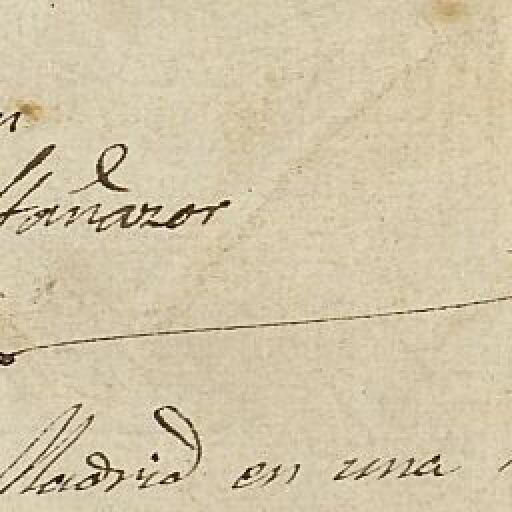 ltañazor
Madrid en una